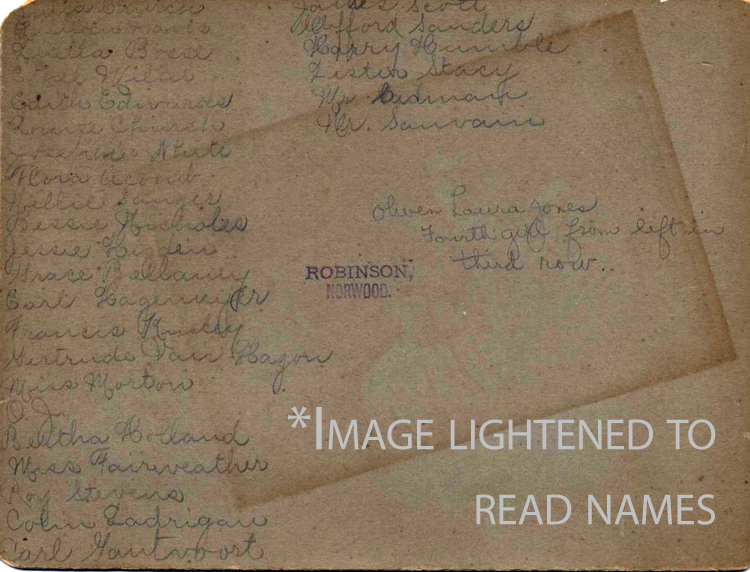 Church
Davis
Zuella Bosse
Miller
Edith Edwards
Church
Josephine White
Flora Acomb
Nellie Sanger
Bessie Nicholes
Jessie Higdin
Grace Bellamy
Earl Hagemeyer
Francis Kucley
Gertrude Van Hagon
Miss Morton
O. J.
Bertha Holland
Miss Fairweather
Roy Stevens
Colin Ladrigan
Carl Gautvoort
James Scott
Clifford Sanders
Harry Humble
Lester Stacy
Mr.
Mr. Sauvain
Olwen Laura Jones
Fourth girl from left in
third row..
ROBINSON,
NORWOOD.
*IMAGE LIGHTENED TO
READ NAMES